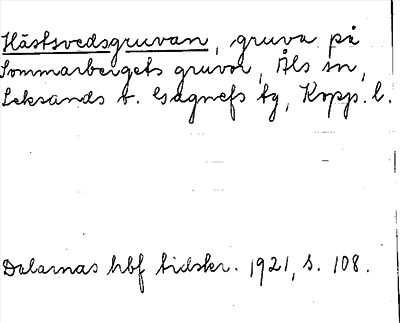 Hästsvedsgruvan, gruva på
Sommarbergets gruvor, Åls sn,
Leksands o. Gagnefs tg, Kopp. l.
Dalarnas hbf tidskr. 1921, s. 108.